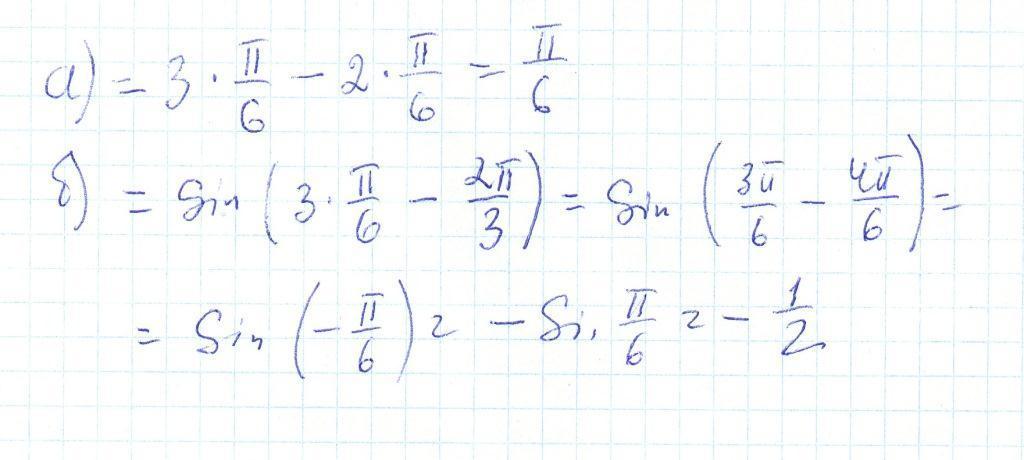 а) = 3 · π/6 − 2 · π/6 = π/6
б) = Sin (3 · π/6 − 2π/3) = Sin (3π/6 − 4π/6) =
= Sin (−π/6) = − Sin π/6 = − 1/2